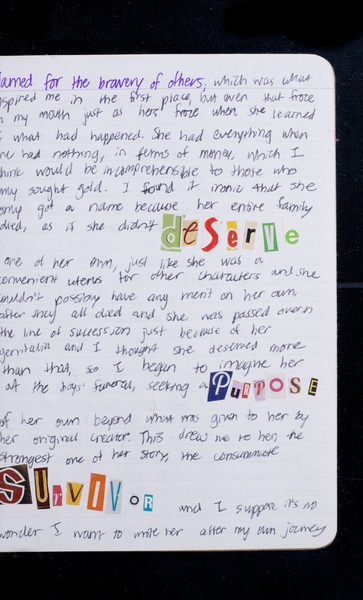 named for the bravery of others, which was what
inspired me in the first place, but even that froze
in my mouth just as hers froze when she learned
of what had happened. She had everything when
she had nothing, in terms of money, which I
think would be incomprehensible to those who
only sought gold. I found it ironic that she
only got a name because her entire family
died, as if she didn't deSerVe
one of her own, just like she was a
convenient uterus for other characters and she
couldn't possibly have any merit on her own
after they all died and she was passed over in
the line of succession just because of her
genitalia and I thought she deserved more
than that, so I began to imagine her
at the boys' funeral, seeking a PurPOSE
of her own beyond what was given to her by
her original creator. This drew me to her, the
strongest one of her story, the consummate
SUrVIVOR and I suppose it's no
wonder I want to write her after my own journey